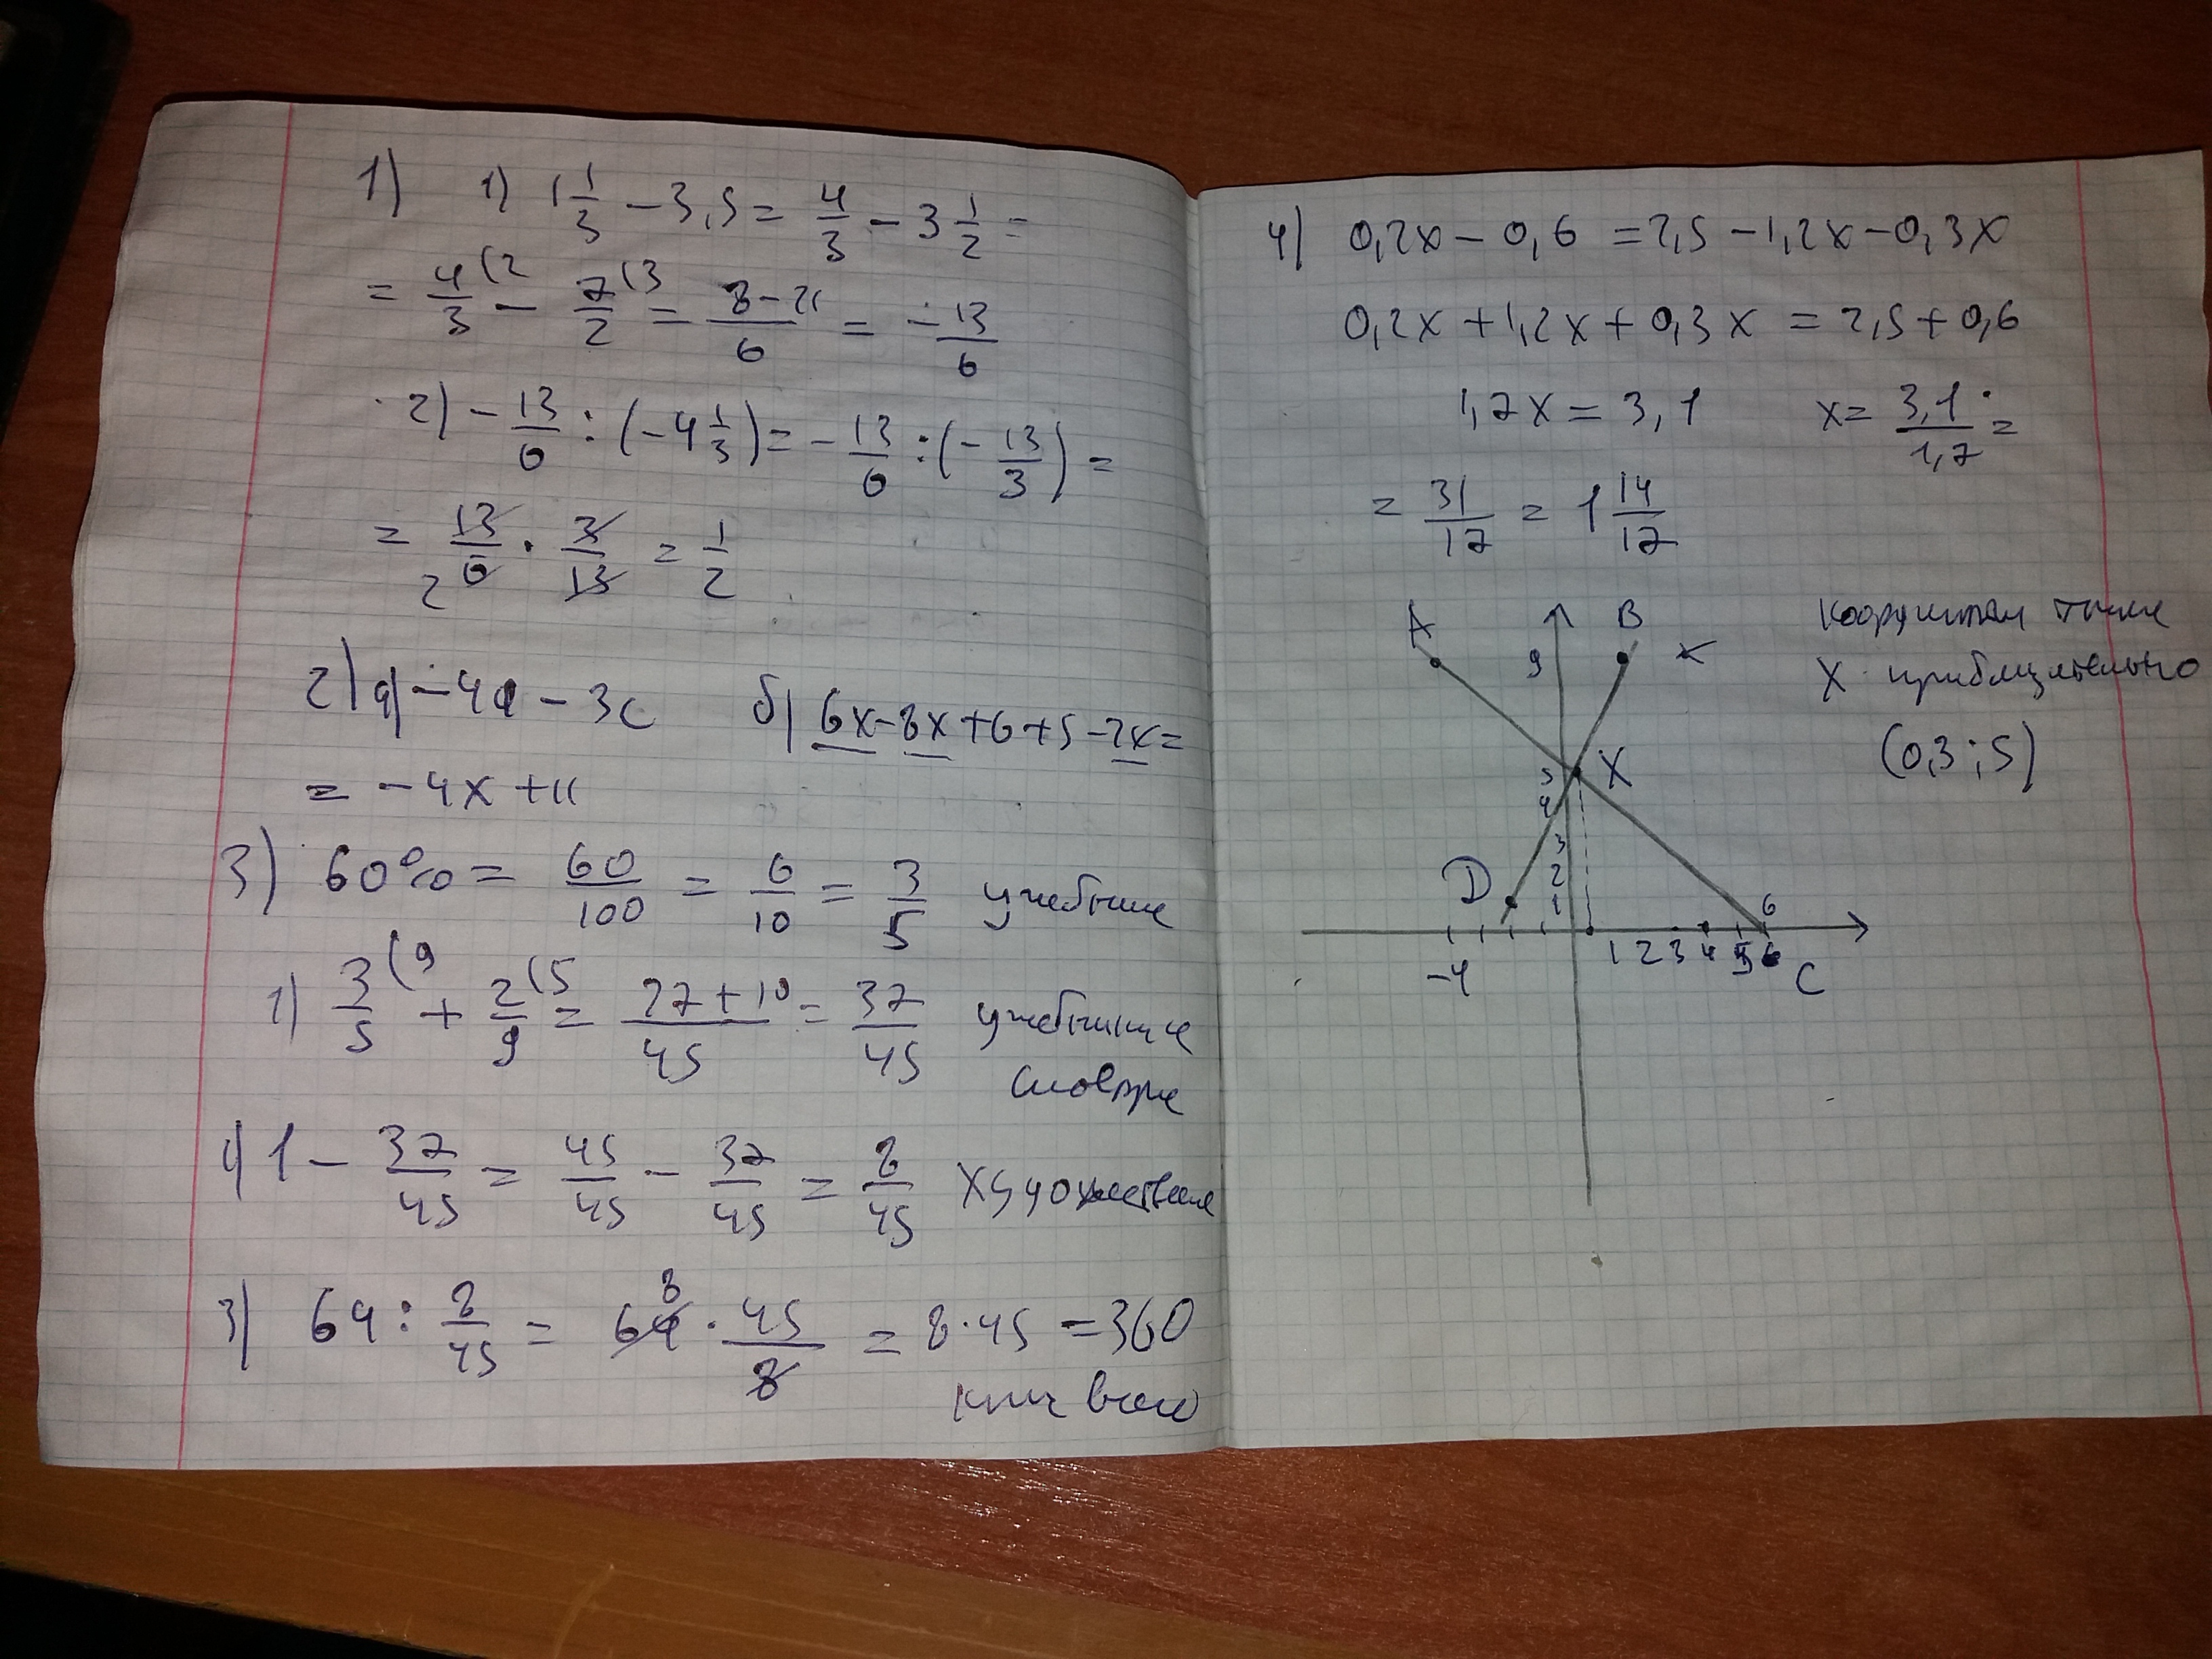 1) 1) 1 1/3 - 3,5 = 4/3 - 3 1/2 =
= 4/3 (2 - 7/2 (3 = 8-21/6 = -13/6
2) -13/6 : (-4 1/3) = -13/6 : (-13/3) =
= 13/6 2 · 3/13 = 1/2
2) а) -4a - 3c б) 6x-8x+6+5-2x=
= -4x+11
3) 60% = 60/100 = 6/10 = 3/5 учебники
1) 3/5 (9 + 2/9 (5 = 27+10/45 = 37/45 учебники и
словари
1 - 37/45 = 45/45 - 37/45 = 8/45 художественные
3) 64 : 8/45 = 64 8 · 45/8 = 8·45 = 360
книг всего
4) 0,2x - 0,6 = 2,5 - 1,2x - 0,3x
0,2x + 1,2x + 0,3x = 2,5 + 0,6
1,7x = 3,1 x = 3,1/1,7 =
= 31/17 = 1 14/17
координаты точки
X приблизительно
(0,3 ; 5)
A B
9
5 X
4
3
2
D 1
6
-4 1 2 3 4 5 6 C